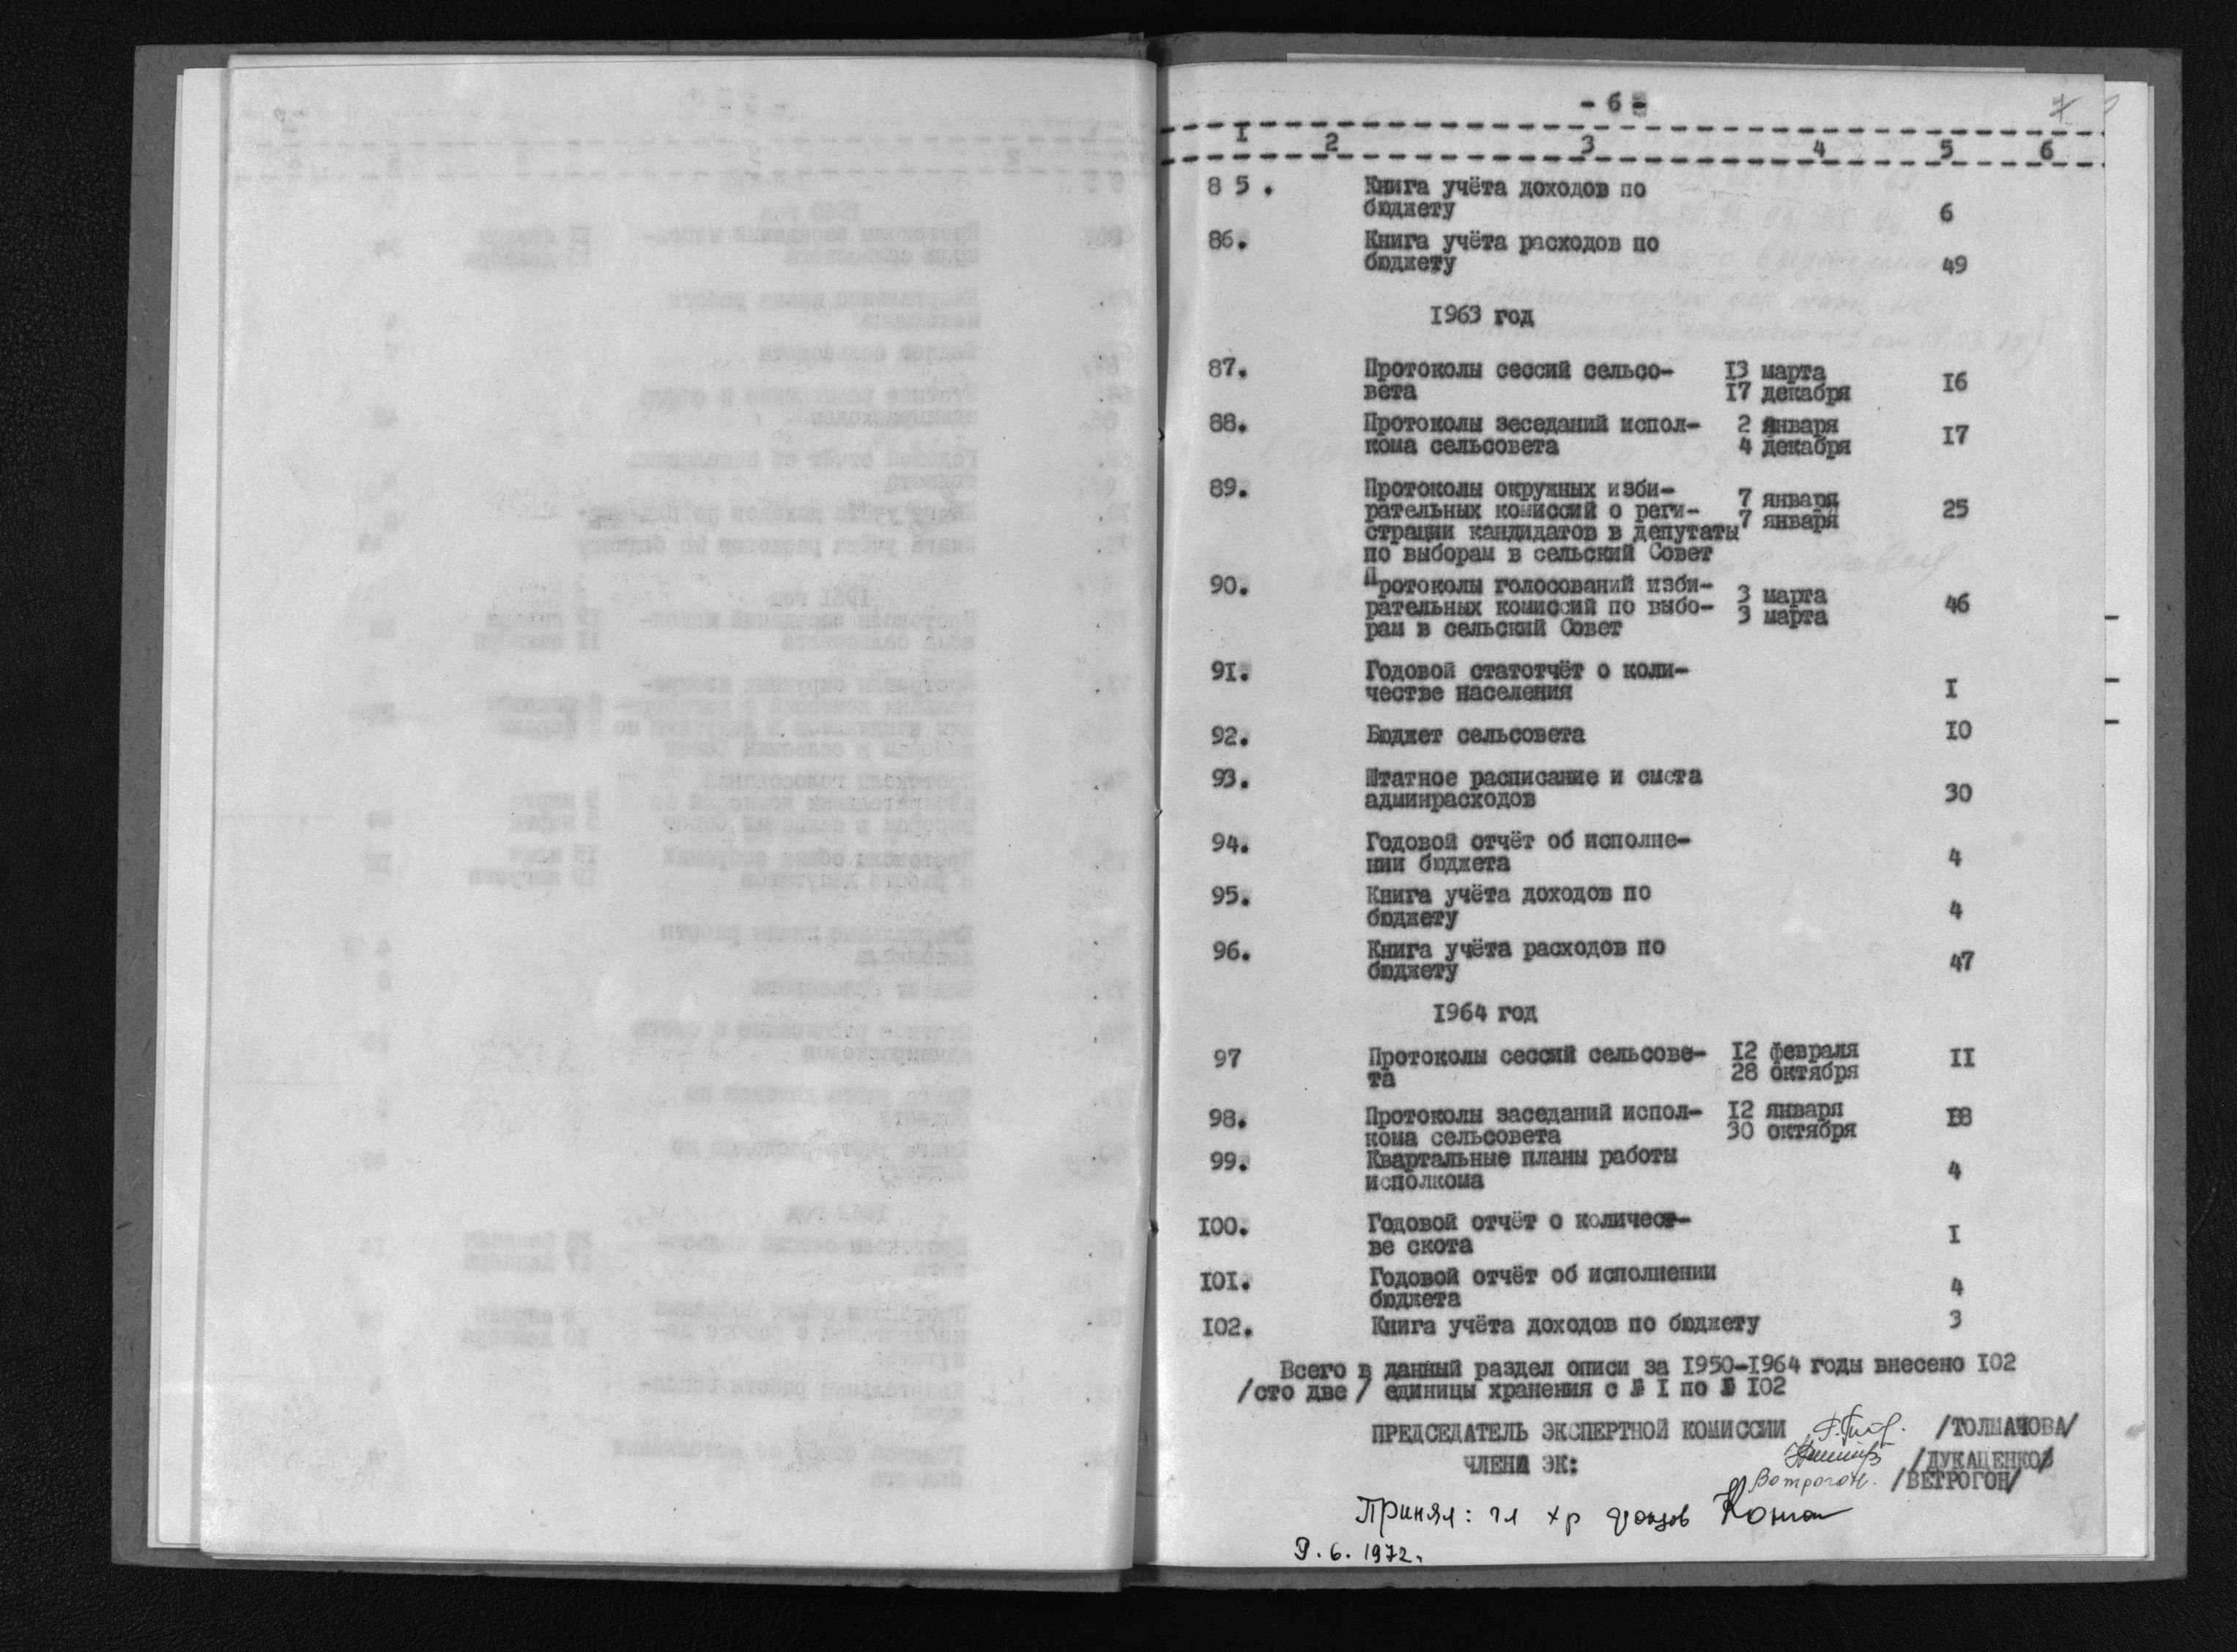 - 6 -
I 2 3 4 5 6
85. Книга учёта доходов по
бюджету 6
86. Книга учёта расходов по
бюджету 49
1963 год
87. Протоколы сессий сельсо- 13 марта
вета 17 декабря 16
88. Протоколы зеседаний испол- 2 января
кома сельсовета 4 декабря 17
89. Протоколы окружных изби- 7 января
рательных комиссий о реги- 7 января 25
страции кандидатов в депутаты
по выборам в сельский Совет
90. Протоколы голосований изби- 3 марта
рательных комиссий по выбо- 3 марта 46
рам в сельский Совет
91. Годовой статотчёт о коли-
честве населения I
92. Бюджет сельсовета I0
93. Штатное расписание и смета
админрасходов 30
94. Годовой отчёт об исполне-
нии бюджета 4
95. Книга учёта доходов по
бюджету 4
96. Книга учёта расходов по
бюджету 47
1964 год
97 Протоколы сессий сельсове- I2 февраля
та 28 октября II
98. Протоколы заседаний испол- I2 января
кома сельсовета 30 октября
99. Квартальные планы работы
исполкома 4
I00. Годовой отчёт о количест-
ве скота I
I0I. Годовой отчёт об исполнении
бюджета 4
I02. Книга учёта доходов по бюджету 3
Всего в данный раздел описи за I950-I964 годы внесено I02
/сто две/ единицы хранения с № I по № I02
ПРЕДСЕДАТЕЛЬ ЭКСПЕРТНОЙ КОМИССИИ /ТОЛМАЧОВА/
ЧЛЕНЫ ЭК: /ЛУКАЦЕНКО/
Ветрогон. /ВЕТРОГОН/
Принял: гл хр фондов
9.6.1972.